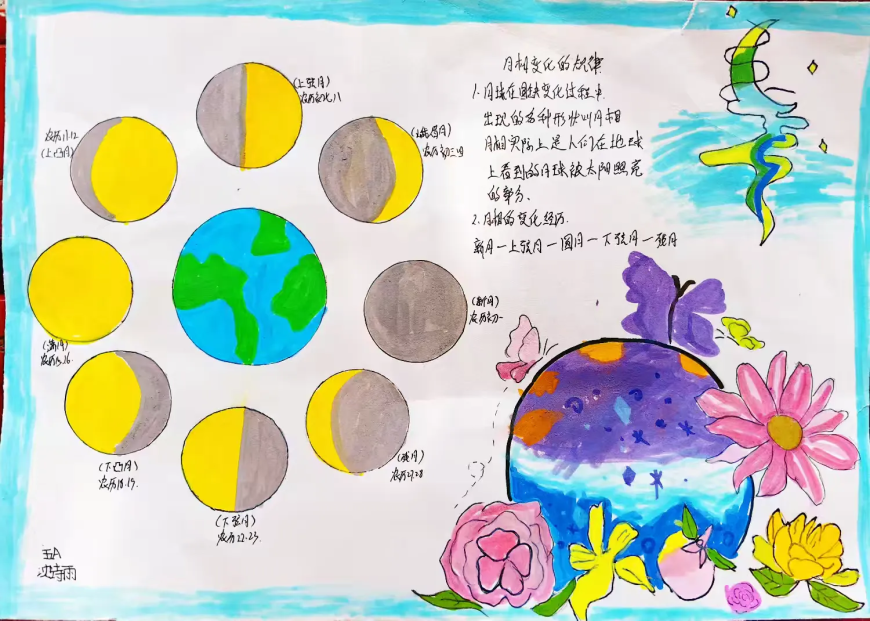 月相变化的规律
1.月球在圆缺变化过程中
出现的各种形状叫月相
月相实际上是人们在地球
上看到的月球被太阳照亮
的部分.
2.月相的变化经历.
新月一上弦月一圆月一下弦月一残月
(上弦月)
农历初七八
农历初三四
农历11.12
(上凸月)
(新月)
农历初一
(满月)
农历15.16.
(下凸月)
农历18.19.
(下弦月)
农历22.23.
(残月)
农历27.28
五A